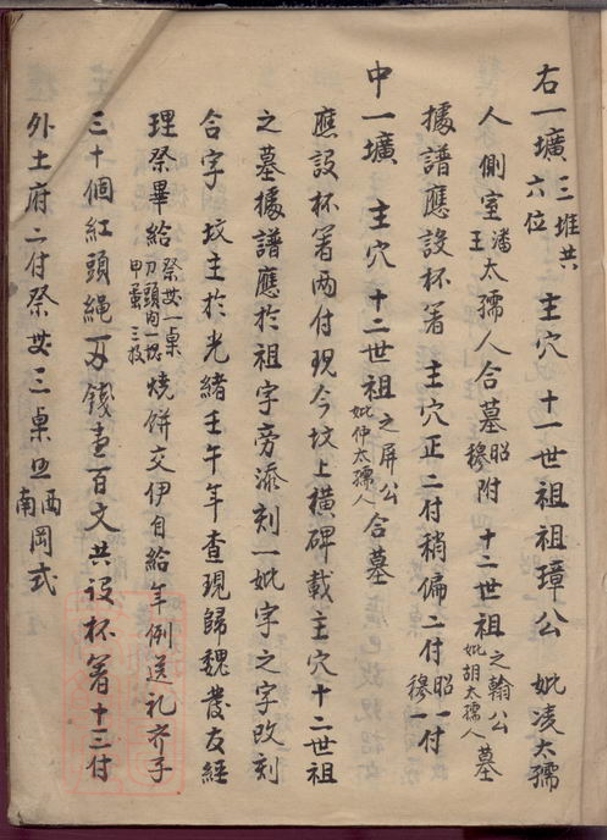 右一壙三堆共六位 主穴 十一世祖祖璋公 妣凌太孺
人側室潘王太孺人合墓昭穆附 十二世祖之翰公妣胡太孺人墓
據譜應設杯箸 主穴正二付稍偏二付昭一付穆一付
中一壙 主穴 十二世祖之屏公妣仲太孺人合墓
應設杯箸两付現今坟上橫碑載主穴十二世祖
之墓據譜應於祖字旁添刻一妣字之字改刻
合字 坟主於光緒壬午年查現歸魏發友經
理祭畢給祭荽一桌刀頭肉一塊甲蛋三枚燒餅交伊自給年例送礼斉子
三十個紅頭繩一万錢壹百文共設杯箸十三付
外土府二付祭荽三桌照西南岡式